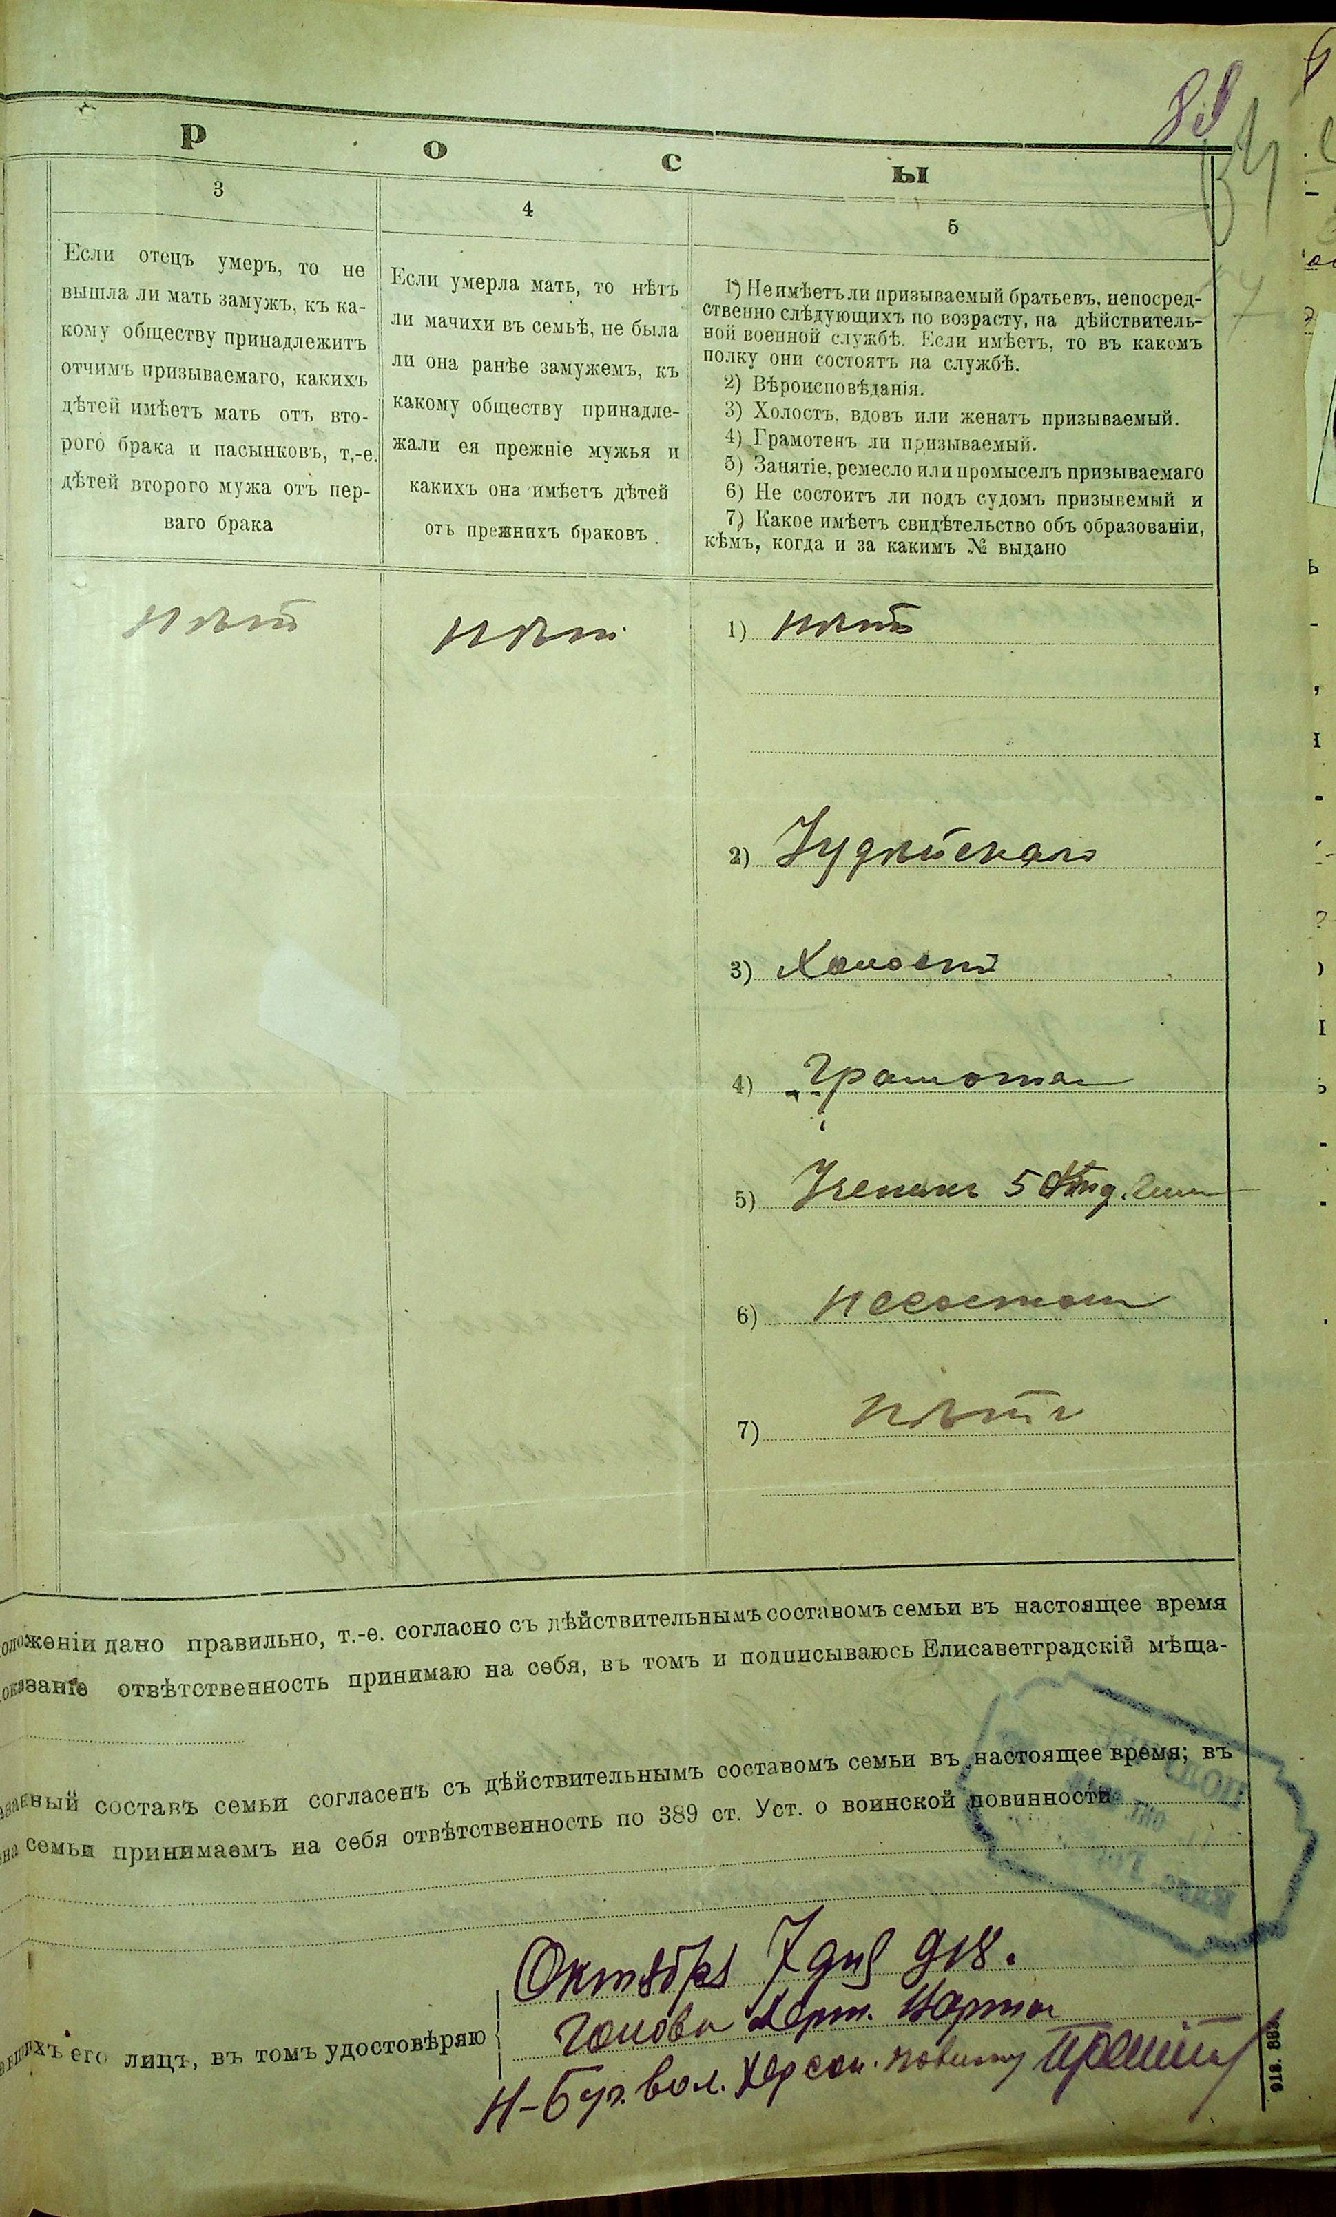 89
Р О С Ы
3
Если отецъ умеръ, то не
вышла ли мать замужъ, къ ка-
кому обществу принадлежитъ
отчимъ призываемаго, какихъ
дѣтей имѣетъ мать отъ вто-
рого брака и пасынковъ, т.-е.
дѣтей второго мужа отъ пер-
ваго брака
4
Если умерла мать, то нѣтъ
ли мачихи въ семьѣ, не была
ли она ранѣе замужемъ, къ
какому обществу принадле-
жали ея прежніе мужья и
какихъ она имѣетъ дѣтей
отъ прежнихъ браковъ
5
1) Не имѣетъ ли призываемый братьевъ, непосред-
ственно слѣдующихъ по возрасту, на дѣйствитель-
ной военной службѣ. Если имѣетъ, то въ какомъ
полку они состоятъ на службѣ.
2) Вѣроисповѣданія.
3) Холостъ, вдовъ или женатъ призываемый.
4) Грамотенъ ли призываемый.
5) Занятіе, ремесло или промыселъ призываемаго
6) Не состоитъ ли подъ судомъ призываемый и
7) Какое имѣетъ свидѣтельство объ образованіи,
кѣмъ, когда и за какимъ № выдано
нѣтъ
нѣтъ
1) нѣтъ
2) Іудейскаго
3) Холостъ
4) Грамотен
5) Ученикъ 5
6) несостоит
7) нѣтъ
оложеніи дано правильно, т.-е. согласно съ дѣйствительнымъ составомъ семьи въ настоящее время
оказаніе отвѣтственность принимаю на себя, въ томъ и подписываюсь Елисаветградскій мѣща-
ный составъ семьи согласенъ съ дѣйствительнымъ составомъ семьи въ настоящее время; въ
семьи принимаемъ на себя отвѣтственность по 389 ст. Уст. о воинской повинности
Октября 7 дня 918.
Голова
ихъ его лицъ, въ томъ удостовѣряю
Н-Буг. вол. Херсон. повиту